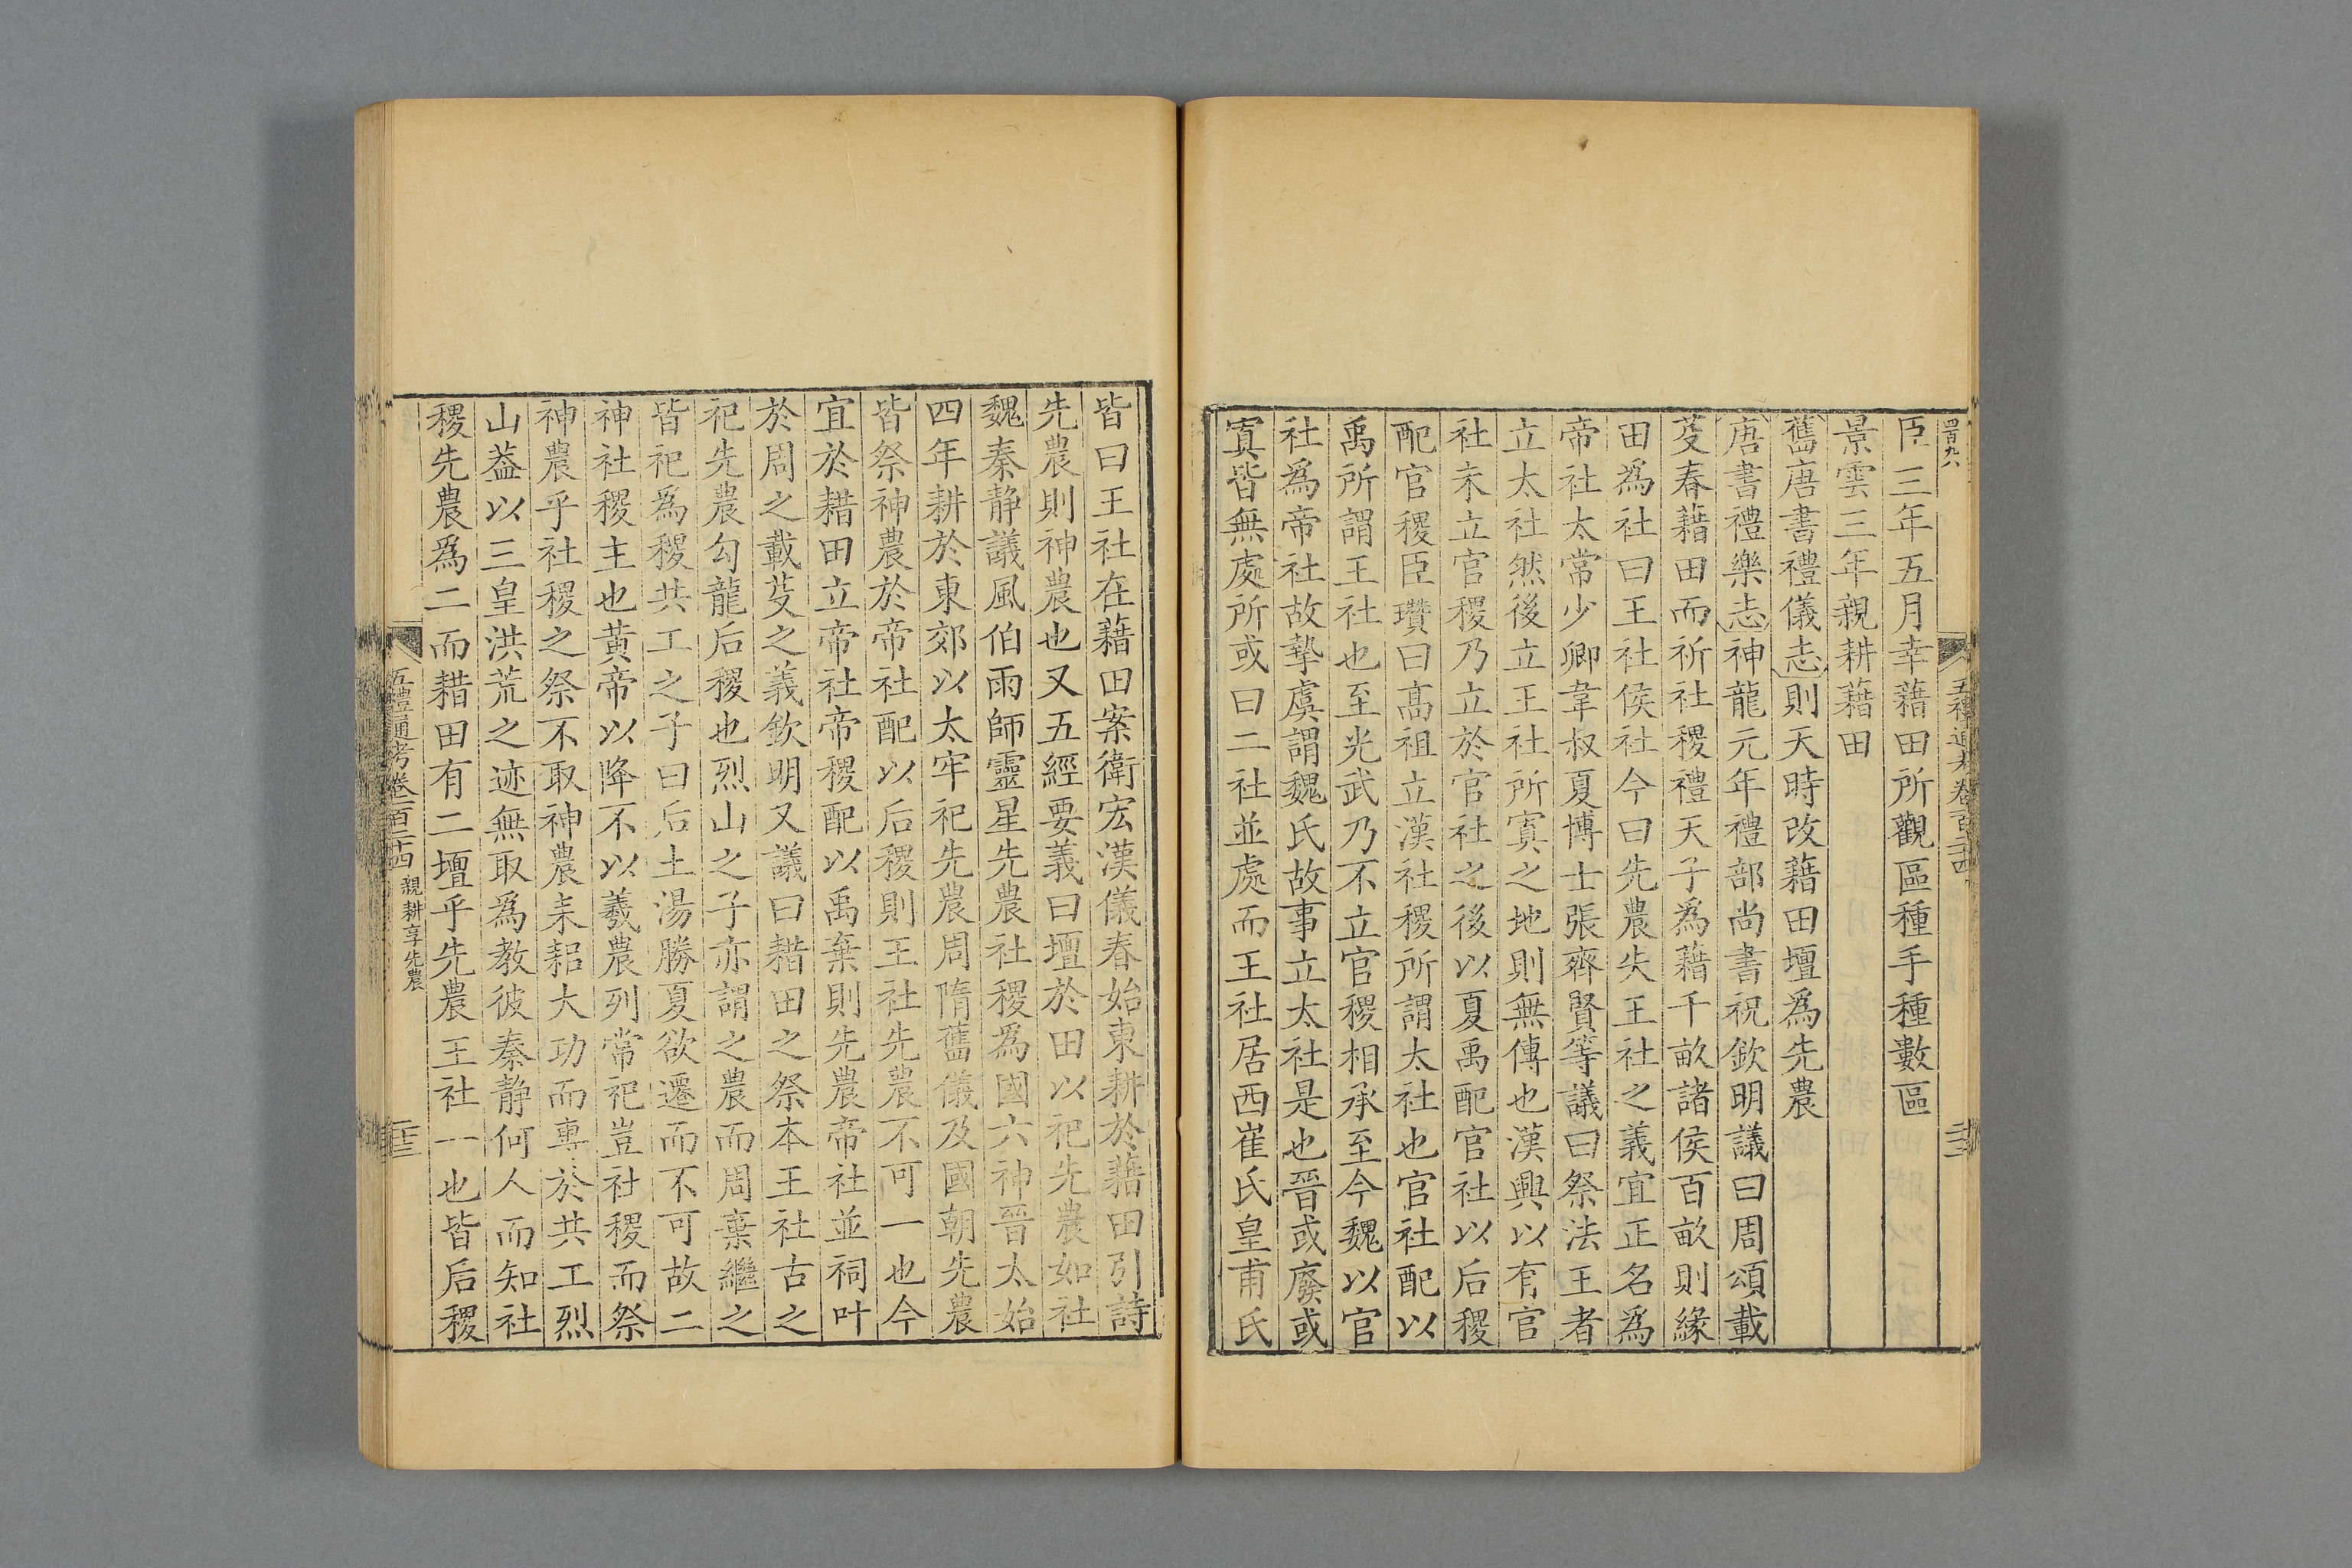 四百九八
臣三年五月幸藉田所觀區種手種數區
景雲三年親耕藉田
舊唐書禮儀志則天時改藉田壇爲先農
唐書禮樂志神龍元年禮部尚書祝欽明議曰周頌載
芟春藉田而祈社稷禮天子爲藉千畝諸侯百畝則緣
田爲社曰王社侯社今曰先農失王社之義宜正名爲
帝社太常少卿韋叔夏博士張齊賢等議曰祭法王者
立太社然後立王社所寘之地則無傳也漢興以有官
社未立官稷乃立於官社之後以夏禹配官社以后稷
配官稷臣瓚曰高祖立漢社稷所謂太社也官社配以
禹所謂王社也至光武乃不立官稷相承至今魏以官
社爲帝社故摯虞謂魏氏故事立太社是也晉或廢或
寘皆無處所或曰二社並處而王社居西崔氏皇甫氏
皆曰王社在藉田案衛宏漢儀春始東耕於藉田引詩
先農則神農也又五經要義曰壇於田以祀先農如社
魏秦静議風伯雨師靈星先農社稷爲國六神晉太始
四年耕於東郊以太牢祀先農周隋舊儀及國朝先農
皆祭神農於帝社配以后稷則王社先農不可一也今
宜於耤田立帝社帝稷配以禹棄則先農帝社並祠叶
於周之載芟之義欽明又議曰耤田之祭本王社古之
祀先農勾龍后稷也烈山之子亦謂之農而周棄繼之
皆祀爲稷共工之子曰后土湯勝夏欲遷而不可故二
神社稷主也黃帝以降不以羲農列常祀豈社稷而祭
神農乎社稷之祭不取神農耒耜大功而專於共工烈
山葢以三皇洪荒之迹無取爲教彼秦静何人而知社
稷先農爲二而耤田有二壇乎先農王社一也皆后稷
五禮通考卷百二十四 親耕享先農